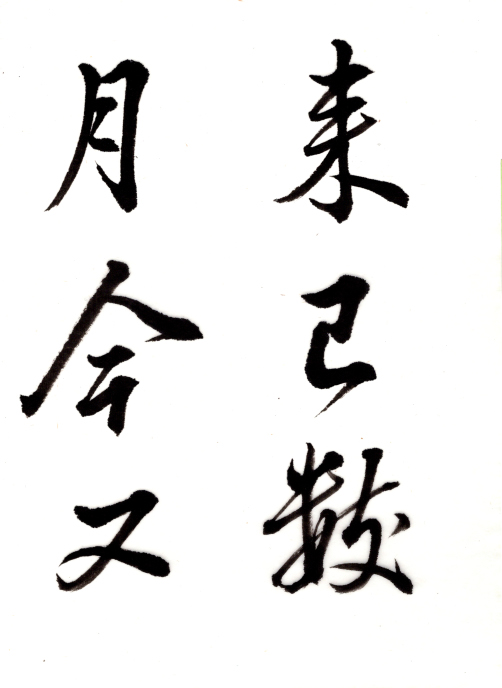 来已数
月今又